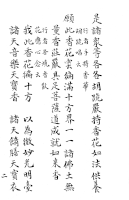 是諸眾等各各胡跪嚴持香花如法供養
願此香花雲徧滿十方界一一諸佛土無
量香莊嚴具足菩薩道成就如來香
我此香花徧十方 以為微妙光明臺
諸天音樂天寶香 諸天餚饍天寶衣
二